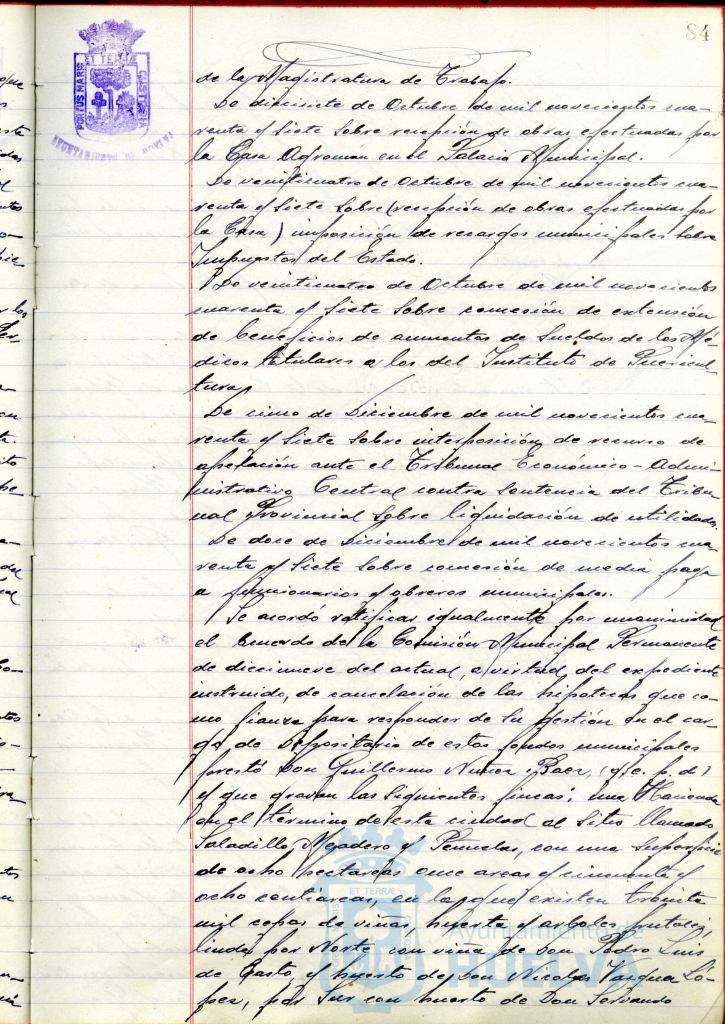 84
PORTUS MARIS ET TERRÆ CUSTODIA
AYUNTAMIENTO DE HUELVA
de la Magistratura de Trabajo.
De diecisiete de Octubre de mil novecientos cua-
renta y siete sobre recepción de obras efectuadas por
la Casa Agroman en el Palacio Municipal.
De veinticuatro de Octubre de mil novecientos cua-
renta y siete sobre (recepción de obras efectuadas por
la Casa) imposición de recargos municipales sobre
Impuestos del Estado.
De veinticuatro de Octubre de mil novecientos
cuarenta y siete sobre concesión de extensión
de beneficios de aumentos de sueldos de los Mé-
dicos titulares a los del Instituto de Puericul-
tura.
De cinco de Diciembre de mil novecientos cua-
renta y siete sobre interposición de recurso de
apelación ante el Tribunal Económico-Admi-
nistrativo Central contra sentencia del Tribu-
nal Provincial sobre liquidación de utilidades.
De doce de Diciembre de mil novecientos cua-
renta y siete sobre concesión de media paga
a funcionarios y obreros municipales.
Se acordó ratificar igualmente por unanimidad
el acuerdo de la Comisión Municipal Permanente
de diecinueve del actual, a virtud del expediente
instruido, de cancelación de las hipotecas que co-
mo fianza para responder de su gestión en el car-
go de Depositario de estos fondos municipales
prestó Don Guillermo Nuñez Baez, (q. e. p. d.)
y que gravan las siguientes fincas: una Hacienda
en el término de esta ciudad al sitio llamado
Saladillo, Mejadero y Peñuelas, con una superficie
de ocho hectareas once areas y cincuenta y
ocho centiáreas, en la que existen treinta
mil cepas de viñas, huerta y arboles frutales,
linda por Norte con viña de Don Pedro Luis
de Casto, y huerto de Don Nicolas Vazquez Ló-
pez, por Sur con huerto de Don Servando
ET TERRÆ
Ayuntamiento de
HUELVA